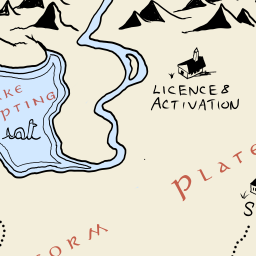 KE
PTING
salt
LICENCE &
ACTIVATION
PLATE
S
FORM